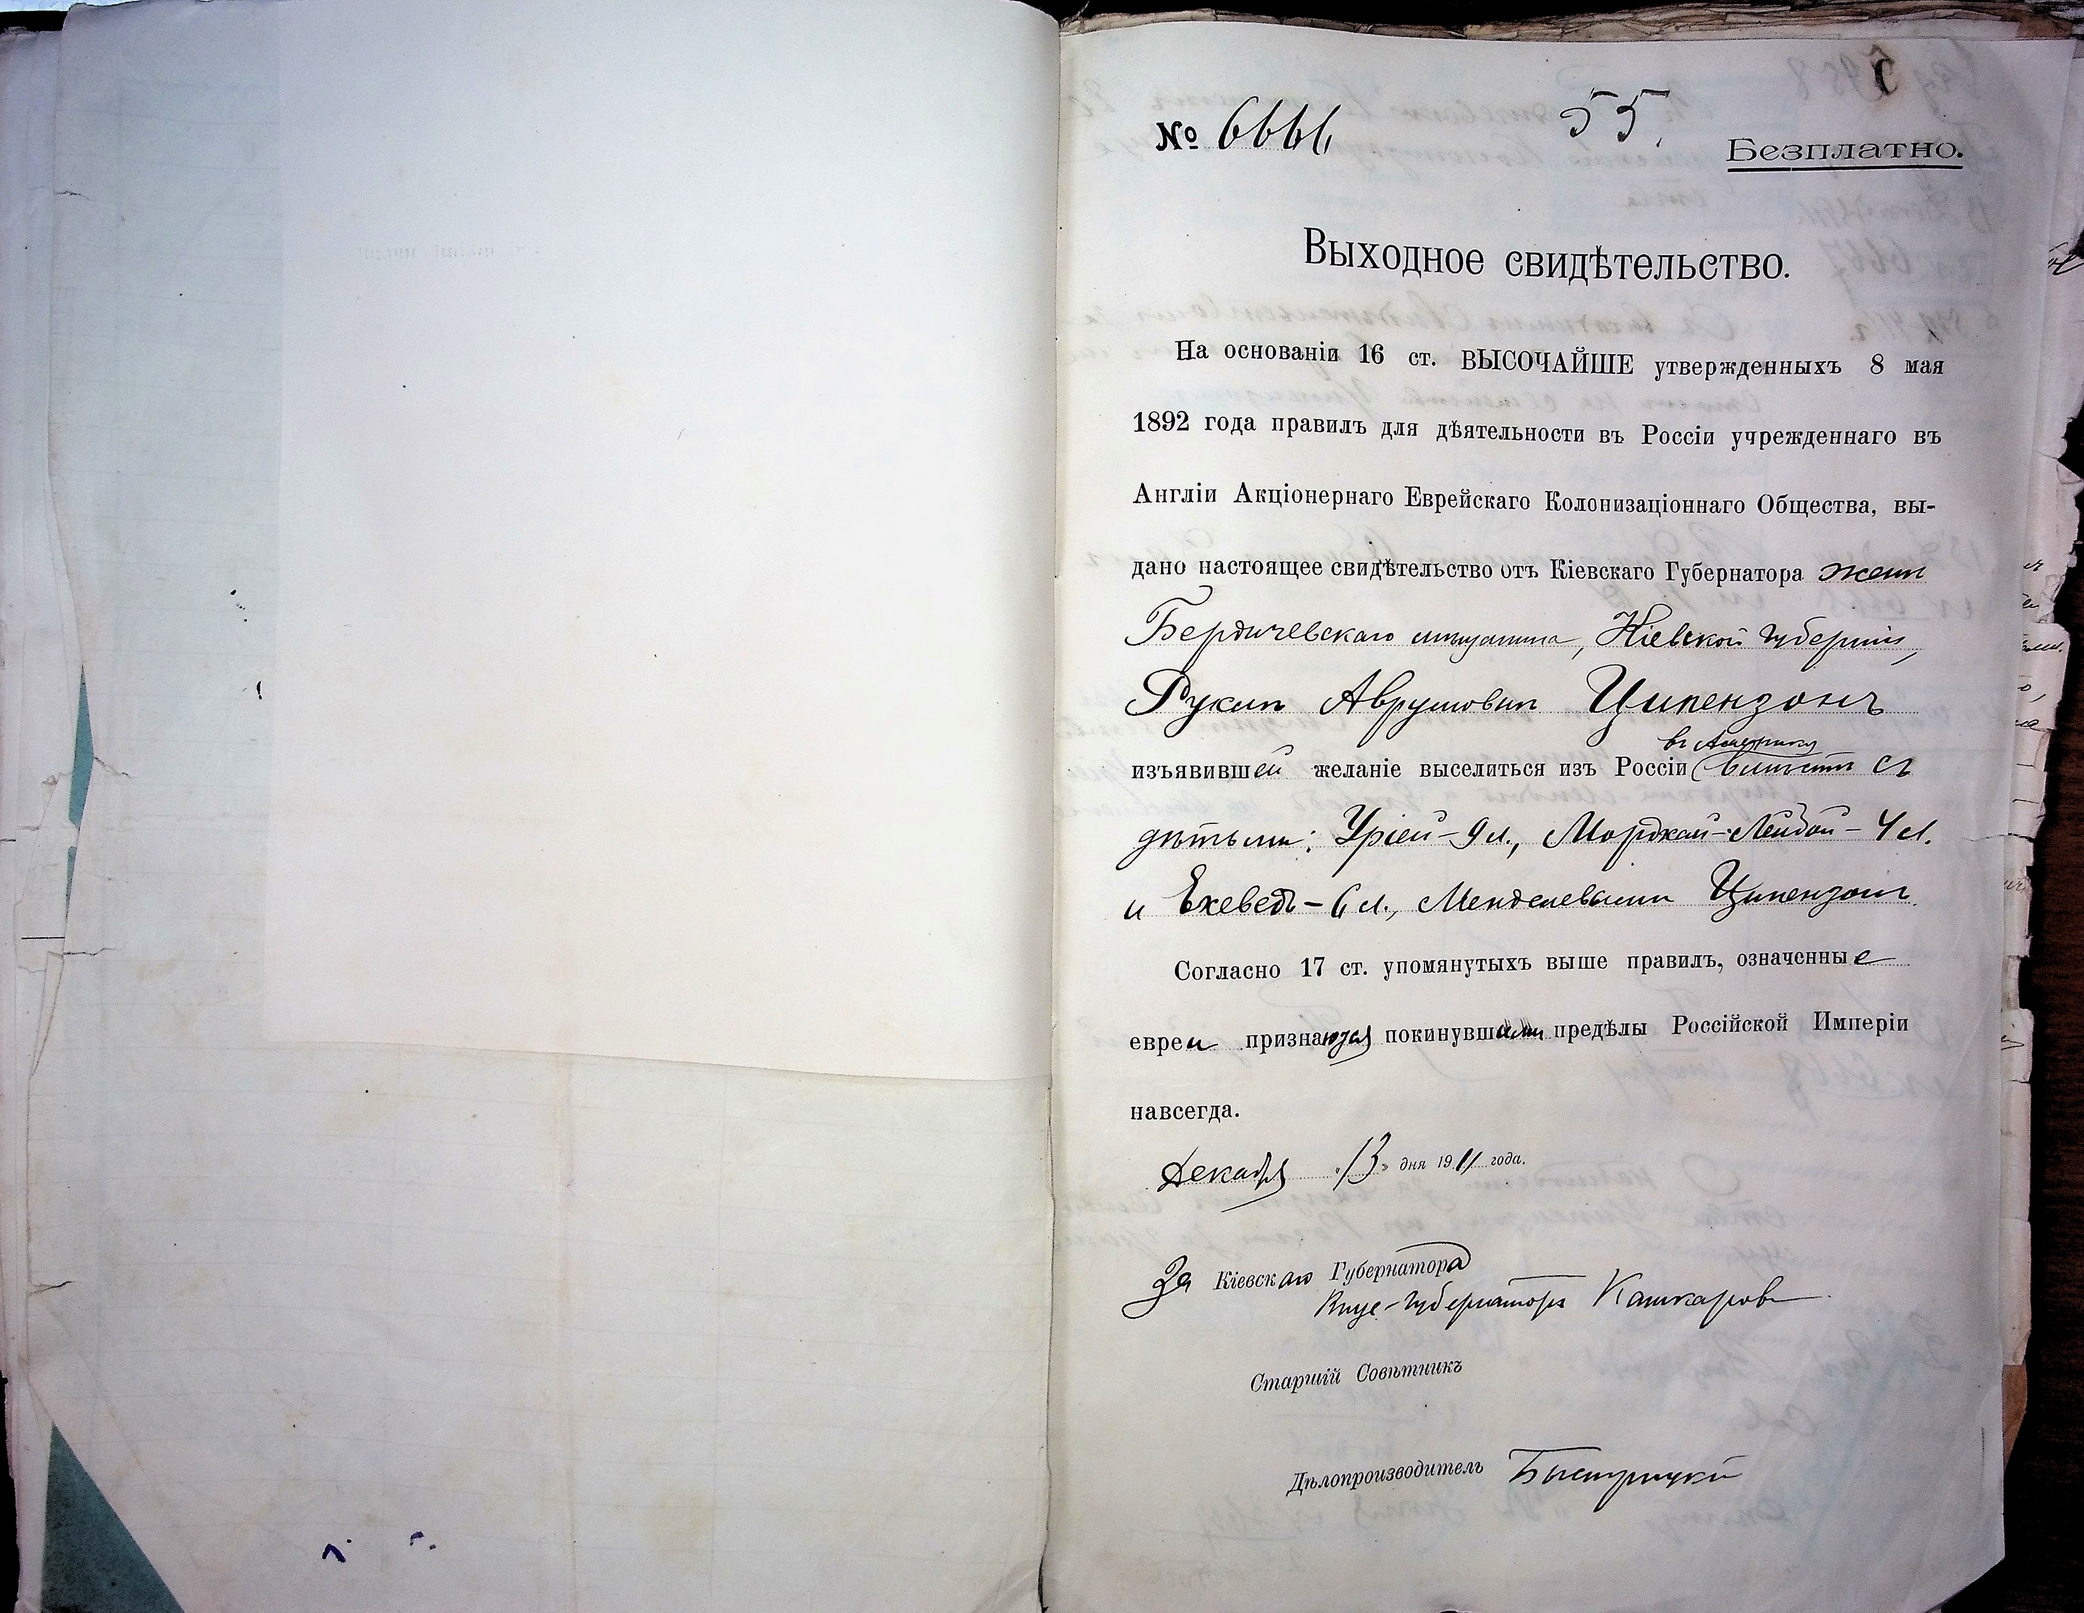 № 6666
55.
Безплатно.
Выходное свидѣтельство.
На основаніи 16 ст. ВЫСОЧАЙШЕ утвержденныхъ 8 мая
1892 года правилъ для дѣятельности въ Россіи учрежденнаго въ
Англіи Акціонернаго Еврейскаго Колонизаціоннаго Общества, вы-
дано настоящее свидѣтельство отъ Кіевскаго Губернатора женѣ
Бердичевскаго мѣщанина, Кіевской губерніи,
Руклѣ Аврумовнѣ Ципензонъ
въ Америку
изъявившей желаніе выселиться изъ Россіи вмѣстѣ съ
дѣтьми: Уріей - 9 л., Мордкой-Лейбой - 4 л.
и Ехеведъ - 6 л., Менделевыми Ципензонъ.
Согласно 17 ст. упомянутыхъ выше правилъ, означенные
евреи признаются покинувшими предѣлы Россійской Имперіи
навсегда.
Декабря «13» дня 1911 года.
За Кіевскаго Губернатора
Вице-Губернаторъ Кашкаровъ
Старшій Совѣтникъ
Дѣлопроизводитель Быстрицкій